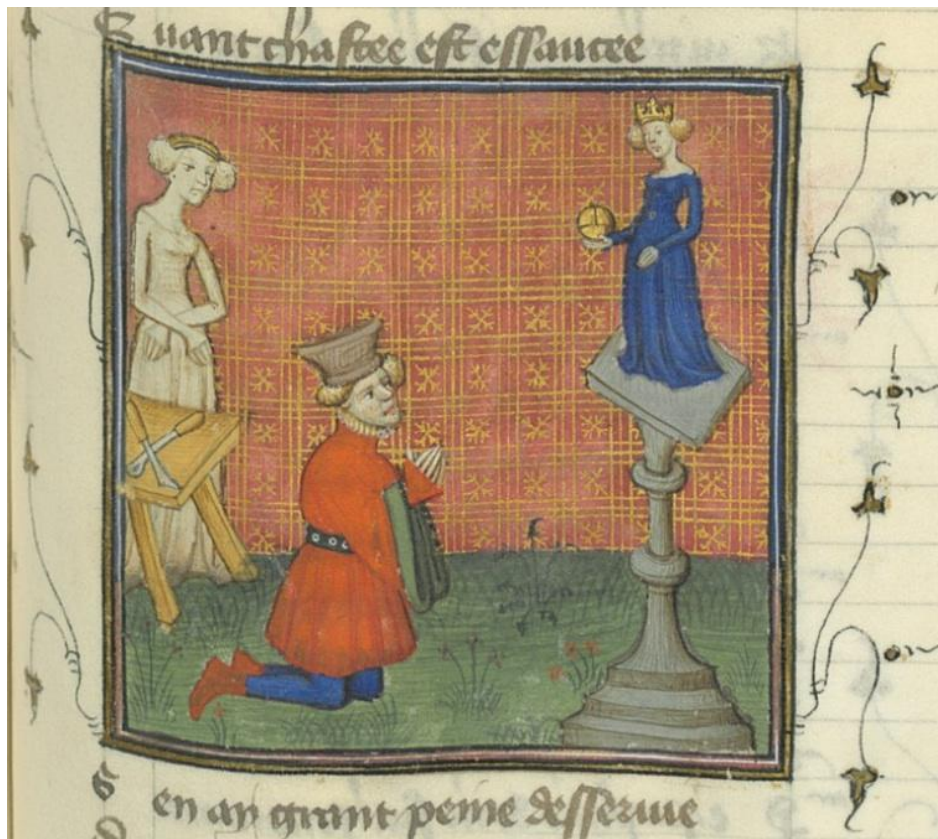 Q uant chastee est essaucee
S en ay grant peine desseruie